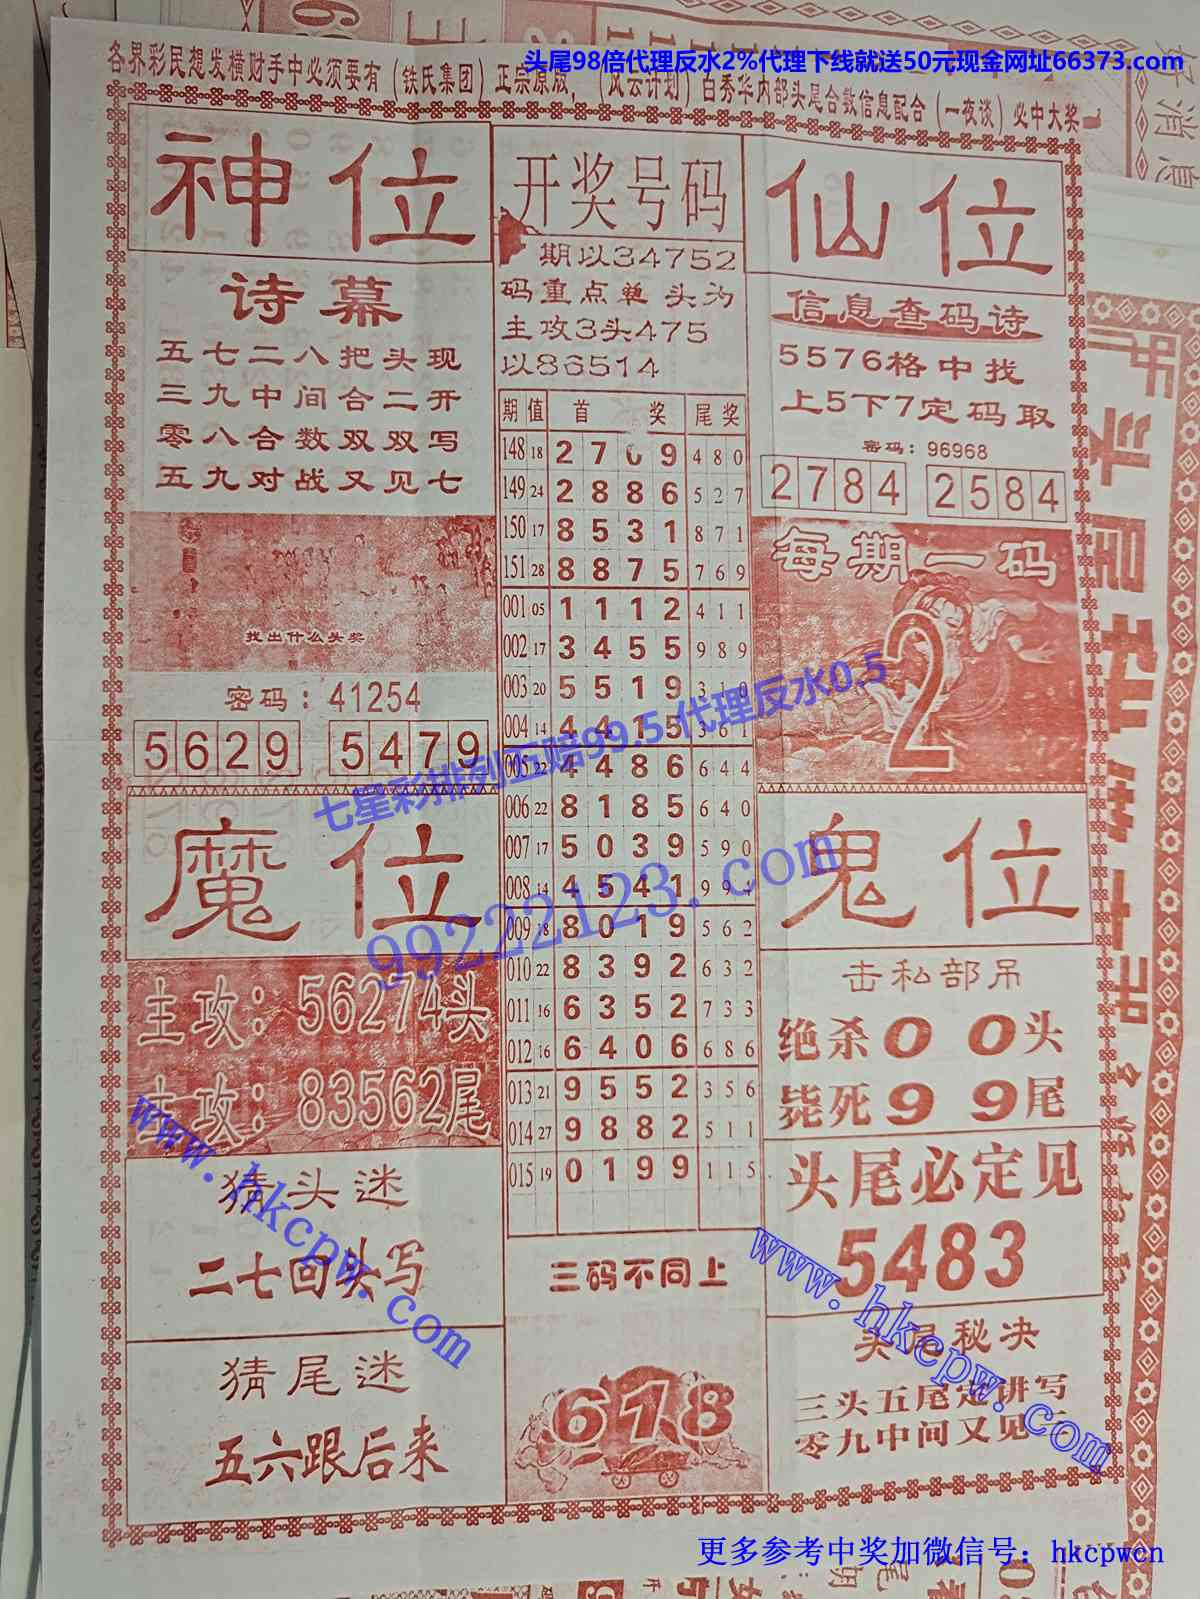 头尾98倍代理反水2%代理下线就送50元现金网址66373.com
各界彩民想发横财手中必须要有（铁氏集团）正宗原版，（风云计划）白秀华内部头尾合数信息配合（一夜谈）必中大奖
神位
诗幕
五七二八把头现
三九中间合二开
零八合数双双写
五九对战又见七
找出什么头奖
密码：41254
5629 5479
魔位
主攻：56274头
主攻：83562尾
猜头迷
二七回头写
猜尾迷
五六跟后来
开奖号码
期以34752
码重点单头为
主攻3头475
以86514
期 值 首 奖 尾奖
148 18 2 7 0 9 4 8 0
149 24 2 8 8 6 5 2 7
150 17 8 5 3 1 8 7 1
151 28 8 8 7 5 7 6 9
001 05 1 1 1 2 4 1 1
002 17 3 4 5 5 9 8 9
003 20 5 5 1 9 3 1 0
004 14 4 4 1 5 3 6 1
005 22 4 4 8 6 6 4 4
006 22 8 1 8 5 6 4 0
007 17 5 0 3 9 5 9 0
008 14 4 5 4 1 9 9 4
009 18 8 0 1 9 5 6 2
010 22 8 3 9 2 6 3 2
011 16 6 3 5 2 7 3 3
012 16 6 4 0 6 6 8 6
013 21 9 5 5 2 3 5 6
014 27 9 8 8 2 5 1 1
015 19 0 1 9 9 1 1 5
三码不同上
678
仙位
信息查码诗
5576格中找
上5下7定码取
密码：96968
2784 2584
每期一码
2
鬼位
击私部吊
绝杀00头
毙死99尾
头尾必定见
5483
头尾秘决
三头五尾定讲写
零九中间又见二
好消息
七星彩排列五赔99.5代理反水0.5
99222123.com
www.hkcpw.com
www.hkcpw.com
更多参考中奖加微信号：hkcpwcn